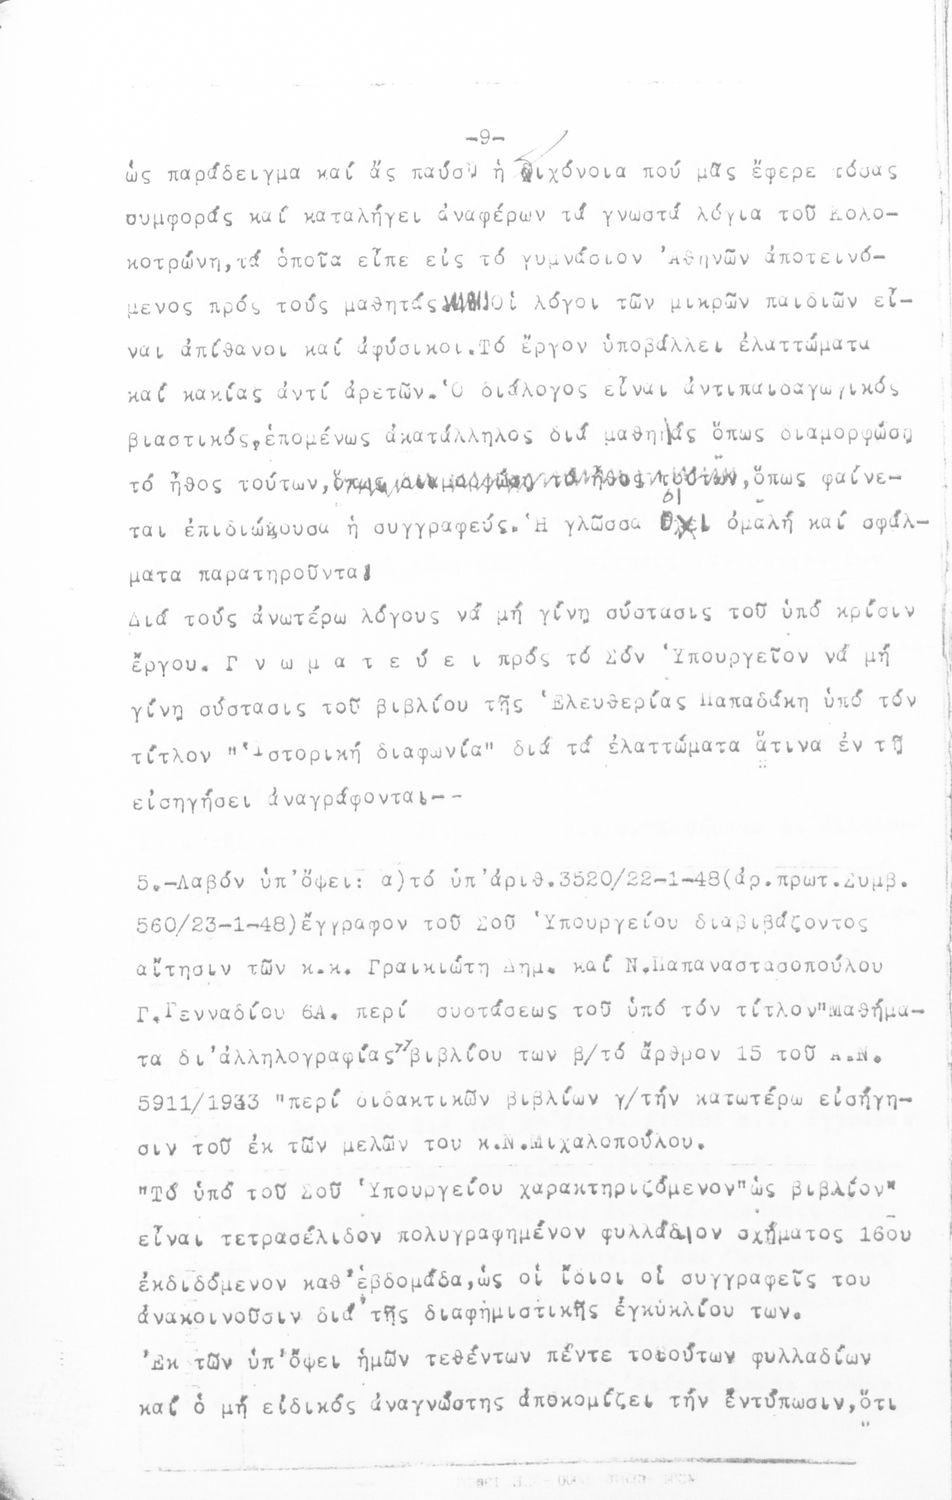 -9-
ὡς παράδειγμα καί ἄς παύσῃ ἡ διχόνοια πού μᾶς ἔφερε τόσας
συμφοράς καί καταλήγει ἀναφέρων τά γνωστά λόγια τοῦ Κολο-
κοτρώνη,τά ὁποῖα εἶπε εἰς τό γυμνάσιον Ἀθηνῶν ἀποτεινό-
μενος πρός τούς μαθητάς. Οἱ λόγοι τῶν μικρῶν παιδιῶν εἶ-
ναι ἀπίθανοι καί ἀφύσικοι.Τό ἔργον ὑποβάλλει ἐλαττώματα
καί κακίας ἀντί ἀρετῶν.Ὁ διάλογος εἶναι ἀντιπαιδαγωγικός
βιαστικός,ἑπομένως ἀκατάλληλος διά μαθητάς ὅπως διαμορφώσῃ
τό ἦθος τούτων,ὅπως διαμορφώσῃ τό ἦθος τούτων,ὅπως φαίνε-
ται ἐπιδιώκουσα ἡ συγγραφεύς.Ἡ γλῶσσα ὄχι ὁμαλή καί σφάλ-
ματα παρατηροῦνται
Διά τούς ἀνωτέρω λόγους νά μή γίνῃ σύστασις τοῦ ὑπό κρίσιν
ἔργου. Γ ν ω μ α τ ε ύ ε ι πρός τό Σόν Ὑπουργεῖον νά μή
γίνῃ σύστασις τοῦ βιβλίου τῆς Ἐλευθερίας Παπαδάκη ὑπό τόν
τίτλον "Ἱστορική διαφωνία" διά τά ἐλαττώματα ἅτινα ἐν τῇ
εἰσηγήσει ἀναγράφονται--
5.-Λαβόν ὑπ'ὄψει: α)τό ὑπ'ἀριθ.3520/22-1-48(ἀρ.πρωτ.Συμβ.
560/23-1-48)ἔγγραφον τοῦ Σοῦ Ὑπουργείου διαβιβάζοντος
αἴτησιν τῶν κ.κ. Γραικιώτη Δημ. καί Ν.Παπαναστασοπούλου
Γ.Γενναδίου 6Α. περί συστάσεως τοῦ ὑπό τόν τίτλον"Μαθήμα-
τα δι'ἀλληλογραφίας"βιβλίου των β/τό ἄρθρον 15 τοῦ Α.Ν.
5911/1933 "περί διδακτικῶν βιβλίων γ/τήν κατωτέρω εἰσήγη-
σιν τοῦ ἐκ τῶν μελῶν του κ.Ν.Μιχαλοπούλου.
"Τό ὑπό τοῦ Σοῦ Ὑπουργείου χαρακτηριζόμενον"ὡς βιβλίον"
εἶναι τετρασέλιδον πολυγραφημένον φυλλάδιον σχήματος 16ου
ἐκδιδόμενον καθ'ἑβδομάδα,ὡς οἱ ἴδιοι οἱ συγγραφεῖς του
ἀνακοινοῦσιν διά τῆς διαφημιστικῆς ἐγκυκλίου των.
Ἐκ τῶν ὑπ'ὄψει ἡμῶν τεθέντων πέντε τοιούτων φυλλαδίων
καί ὁ μή εἰδικός ἀναγνώστης ἀποκομίζει τήν ἐντύπωσιν,ὅτι